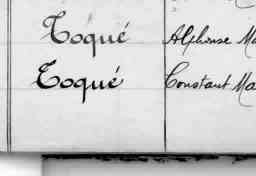 Toqué Alphonse Ma
Toqué Constant Ma